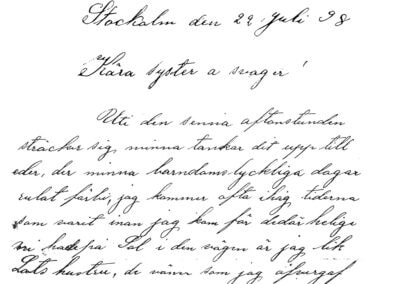 Stockolm den 22 Juli 98
Kära syster a svager!
Uti den senna aftonstunden
sträcker sig minna tankar dit upp till
eder, der minna barndoms lyckliga dagar
rulat förbi, jag kommer ofta ihåg tiderna
som varit inan jag kom för
vi hade på Sal i den vägen är jag lik
Lots hustru, de vänn som jag öfvergaf